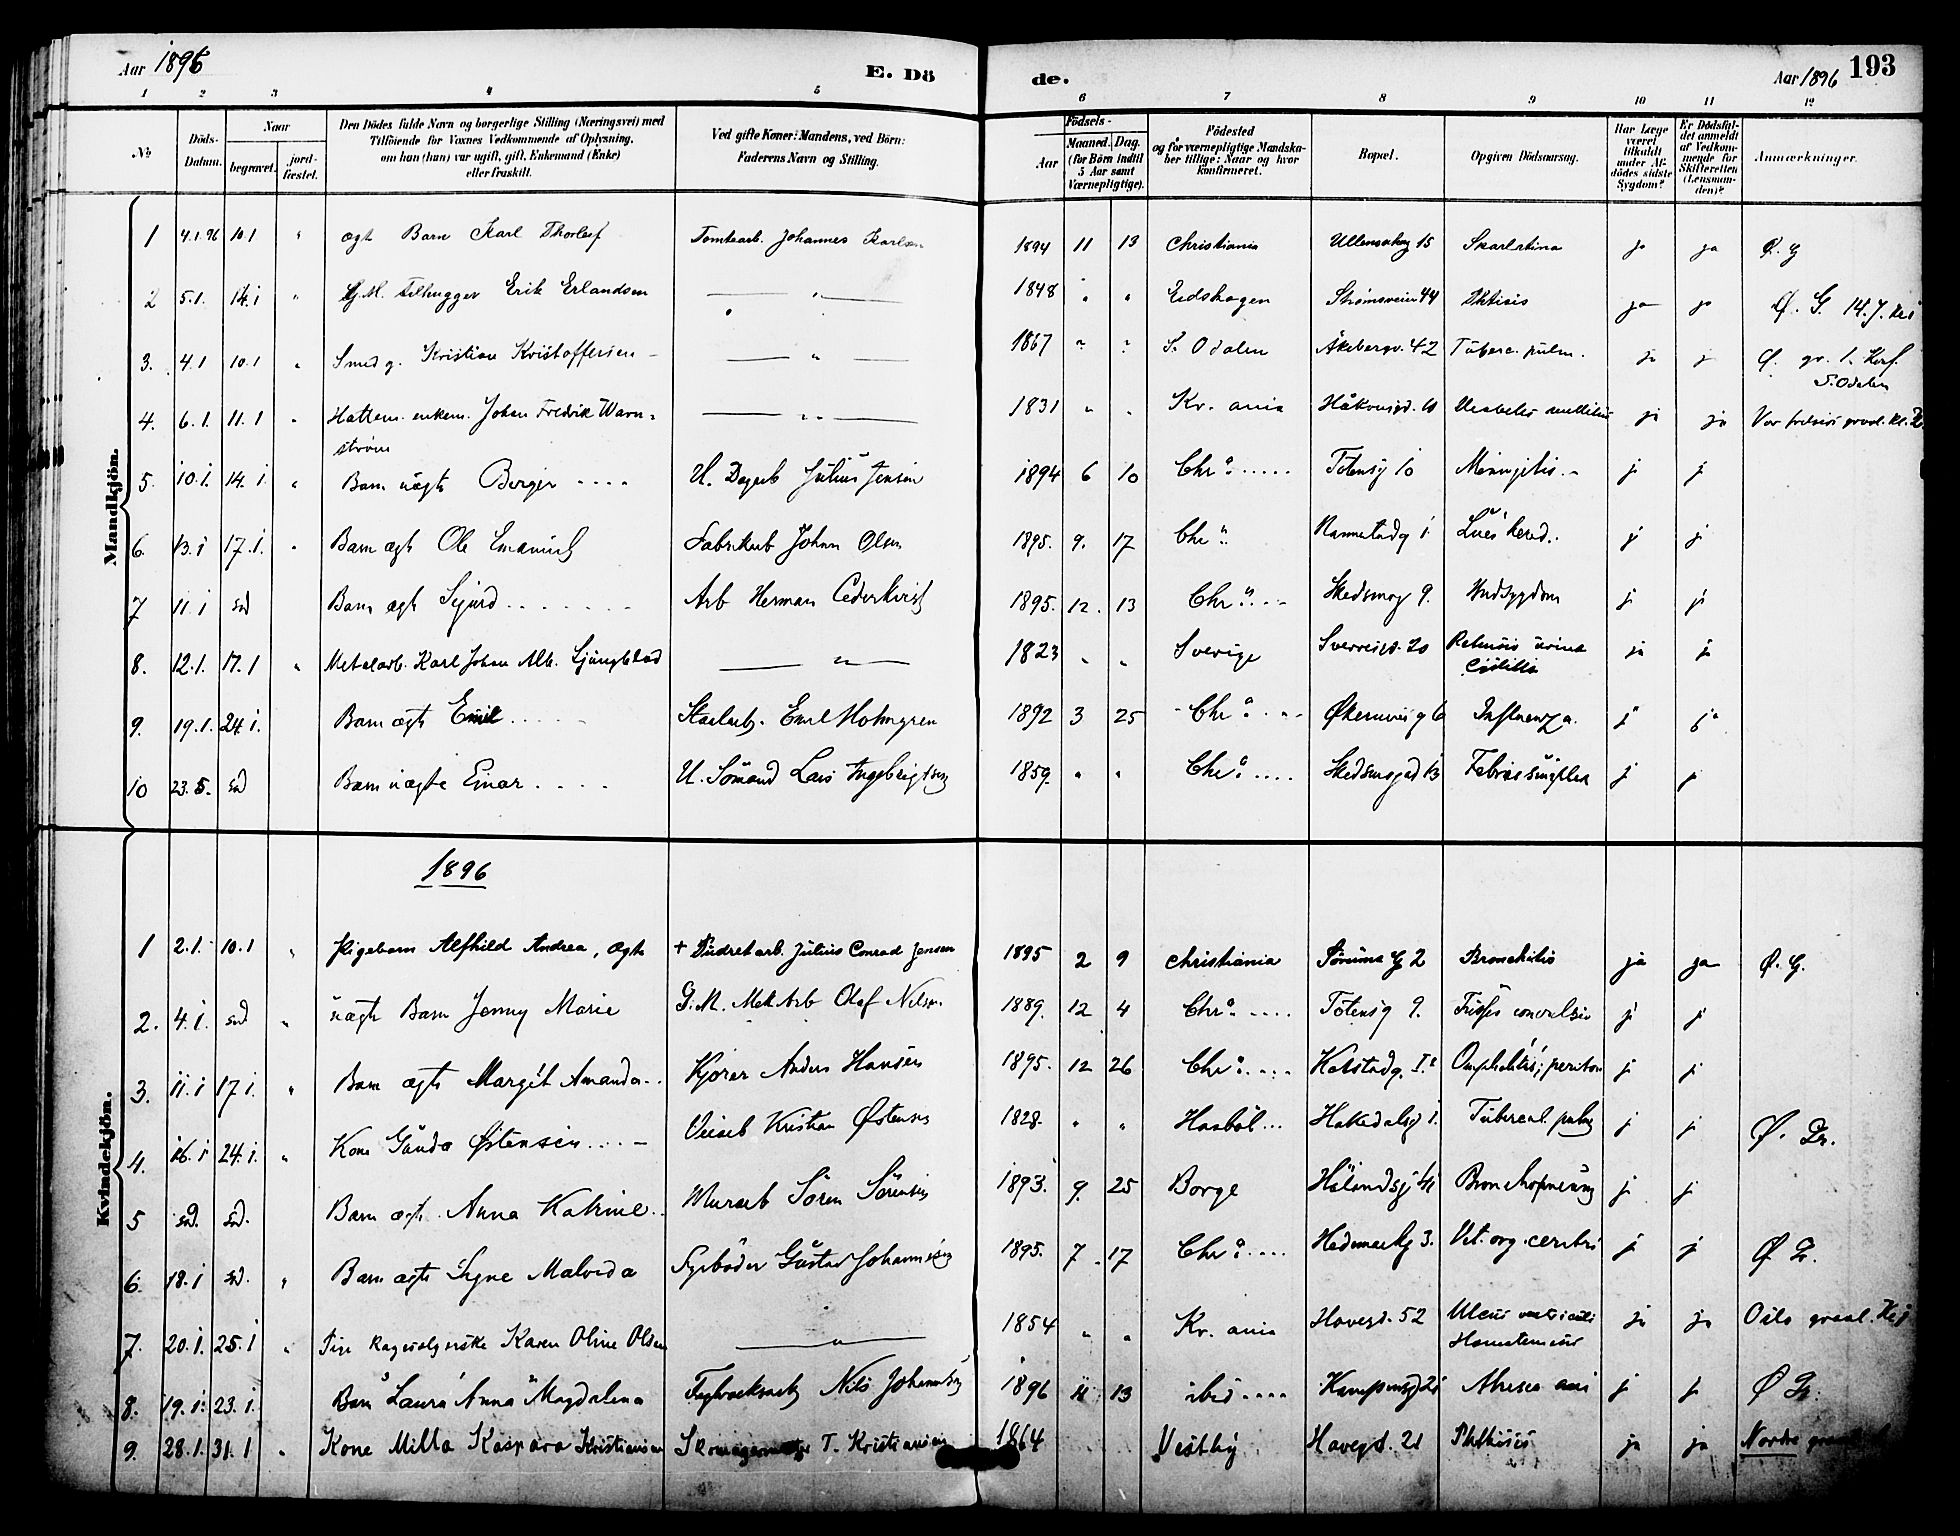 Aar 1896 E. Dö de. Aar 1896 193
1 2 3 4 5 6 7 8 9 10 11 12
No
Döds-Datum.
Naar
begravet.
jordfæstet.
Den Dödes fulde Navn og borgerlige Stilling (Næringsvei) med
Tilföiende for Voxnes Vedkommende af Oplysning,
om han (hun) var ugift, gift, Enkemand (Enke)
eller fraskilt.
Ved gifte Koner: Mandens, ved Börn:
Faderens Navn og Stilling.
Födsels-
Aar
Maaned. Dag.
(for Börn indtil
5 Aar samt
Værnepligtige).
Födested
og for værnepligtige Mandskaber tillige: Naar og hvor
konfirmeret.
Bopæl.
Opgiven Dödsaarsag.
Har Læge
været
tilkaldt
under Afdödes sidste
Sygdom?
Er Dödsfaldet anmeldt
af Vedkommende for
Skifteretten
(Lensmanden)?
Anmærkninger.
Mandkjön.
1 4.1.96 10.1 " ægt Barn Karl Thorleif Tomtearb. Johannes Karlsen 1894 11 13 Christiania 15 Skarlatina ja ja Ø. G
2 5.1. 14.1 " Erik Erlandsen — " — 1848 " " Eidskogen Strømsveien 44 Phtisis ja ja Ø. G. 14.
3. 4.1 10.1 " Smed g. Kristian Kristoffersen — " — 1867 " " S. Odalen Åkebergv. 42 Tuberc. pulm. ja j Ø. gr. S. Odalen
4. 6.1. 11.1 " Hattem. enkem. Johan Fredrik Warnström — " — 1831 " " Kr. ania Håkonsgd. 10 mellitus ja ja Vor frelsers gravl.
5. 10.1. 14.1. " Barn uægte Birger .... U. Dagarb Julius Jensen 1894 6 10 Chra ..... Totensg 10 Meningitis. j j
6. 13.1 17.1. " Barn ægt Ole Emanuel Fabrikarb Johan Olsen 1895. 9. 17 Chra Lues hered. j j
7 11.1 sd Barn ægt Sigurd ...... Arb Herman Cederkvist 1895. 12. 13 Chra ... Skedsmog 9. Hudsygdom j j
8. 12.1. 17.1 " Metalarb. Karl Johan Alb. Ljungblad — " — 1823 " " Sverige Sverresgt. 20 Retensio urina ja ja
9. 19.1. 24.1. Barn ægt Emil ..... Emil Holmgren 1892 3 25 Chra ... Influenza. j j
10 23.5. sd Barn uægte Einar .... U. Sömand Lars Ingebrigtsen 1859. " " Chra .... Skedsmogd 13 Febris j j
1896
Kvindekjön.
1 2.1. 10.1 " Pigebarn Alfhild Andrea, ægte + Pudretarb. Julius Conrad Jensen 1895 2 9 Christiania Sørumsg 2 Bronchitis ja ja Ø. G.
2. 4.1. sd " uægte Barn Jenny Marie G. M. Mek Arb Olaf Nilsen 1889. 12 4 Chra .... Totensg 9. Tussis convulsiv j j
3. 11.1 17.1. " Barn ægte Margit Amanda .. Kjører Anders Hansen 1895. 12 26 Chra .... j j
4. 16.1 24.1. " Kone Gunda Østensen ... Veiarb Kristian Østensen 1828. " " Hasböl ... Hakedalsg 1. Tubercul. pulm j j Ø. Gr.
5 sd. sd. Barn ægt. Anna Katrine .. Murarb Sören Sörensen 1893. 9. 25 Borge Hölandsg 41 Bronchopneum j j
6. 18.1 sd. " Barn ægte Signe Malvida Gustav Johannesen 1895. 7. 17 Chra .... Hedemarkg 3. Vit. org. centri j j Ø Gr.
7. 20.1. 25.1 " Karen Oline Olsen — " — 1854 " " Kr. ania Havegd. 52 Ulcus ventriculi ja ja Oslo gravl.
8. 19.1. 23.1. Barn Laura Anna Magdalena Nils Johannesen 1896 11 13 ibid .... Kampensgd 21 Atresia ani j j Ø Gr.
9. 28.1. 31.1 " Kone Milla Kaspara Kristiansen Skomagermester T. Kristiansen 1864 Vestby Havegd. 21 Phthisis ja ja Nordre